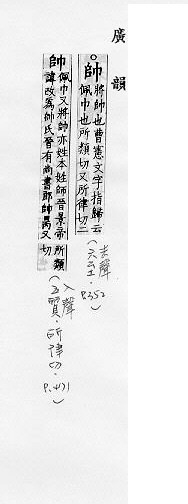 廣韻
帥 將帥也曹憲文字指歸云
佩巾也所類切又所律切二
(去聲
六至·P.352)
帥 佩巾又將帥亦姓本姓師晉景帝
諱改爲帥氏晉有尚書郎帥昺又所類切
(入聲
五質·所律切·P.471)